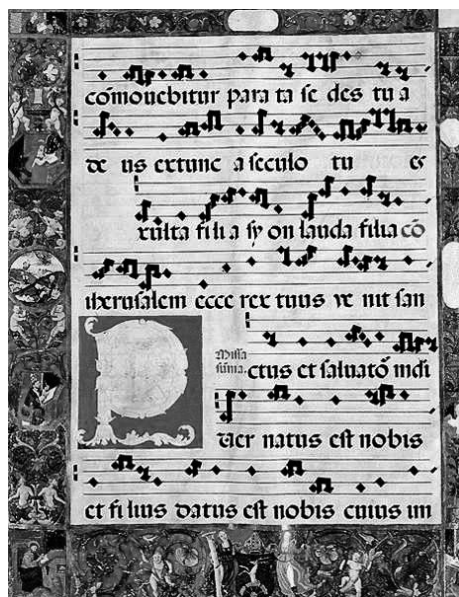 cōmouebitur para ta se des tu a
de us extunc a seculo tu es
xulta fili a sy on lauda filia cō
iherusalem ecce rex tuus ve nit san
Missa
sūma. ctus et saluatō mdi
P uer natus est nobis
et fi lius datus est nobis cuius im